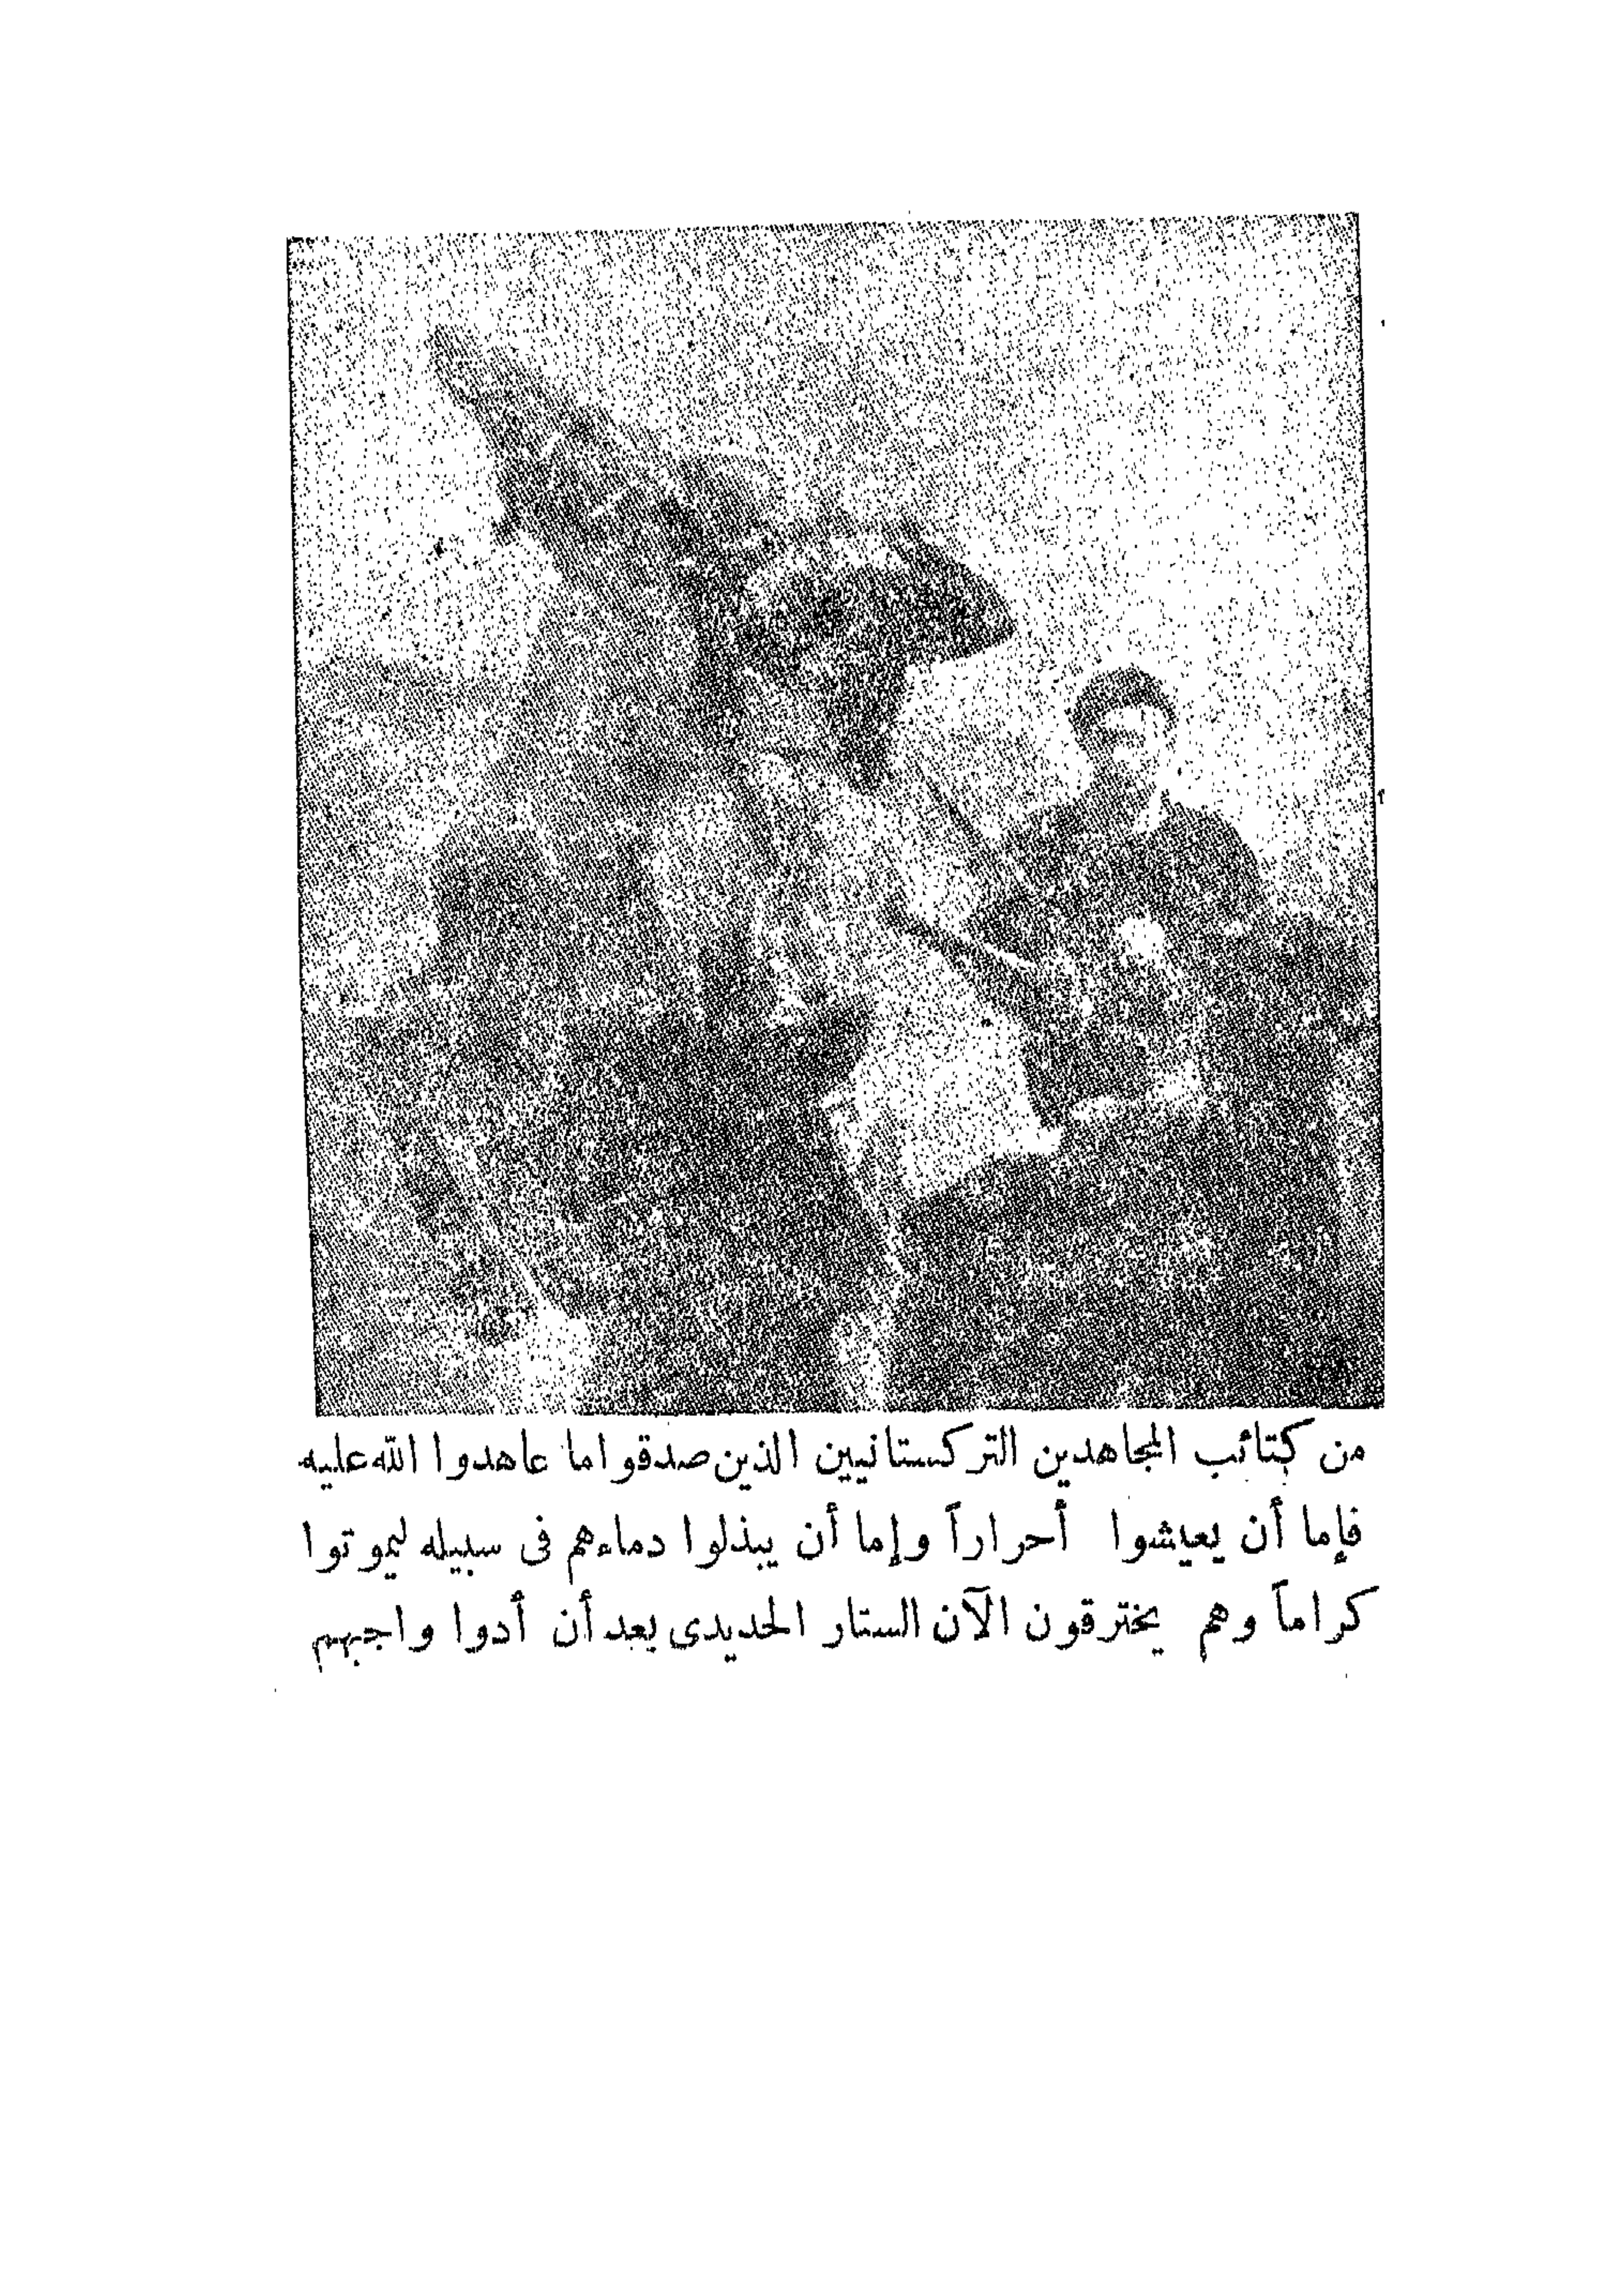 من كتائب المجاهدين التركستانيين الذين صدقوا ما عاهدوا الله عليه
فإما أن يعيشوا أحراراً وإما أن يبذلوا دماءهم فى سبيله ليموتوا
كراماً وهم يخترقون الآن الستار الحديدى بعد أن أدوا واجبهم